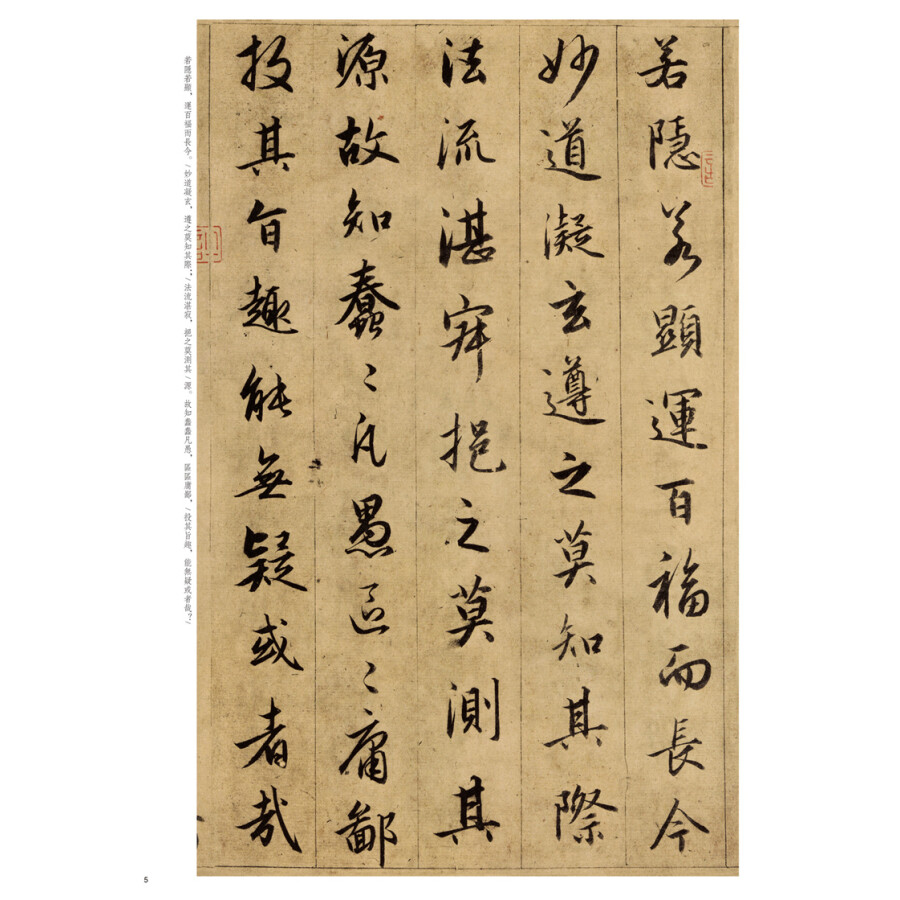 若隱若顯運百福而長今
妙道凝玄遵之莫知其際
法流湛寂挹之莫測其
源故知蠢〻凡愚區〻庸鄙
投其旨趣能無疑或者哉
若隱若顯，運百福而長今。/妙道凝玄，遵之莫知其際；/法流湛寂，挹之莫測其/源。故知蠢蠢凡愚，區區庸鄙，/投其旨趣，能無疑或者哉？/
5